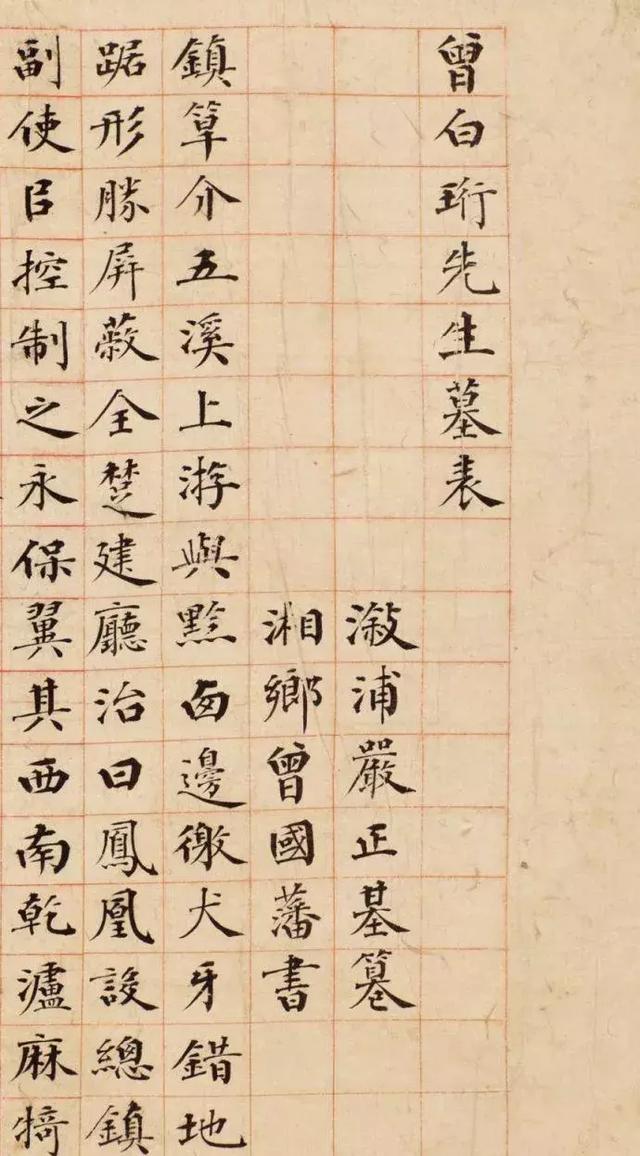 曾白珩先生墓表
漵浦嚴正基篹
湘鄉曾國藩書
鎮筸介五溪上游與黔卥邊徼犬牙錯地
踞形勝屏蔽全楚建廳治曰鳳凰設總鎮
副使㠯控制之永保翼其西南乾瀘麻犄